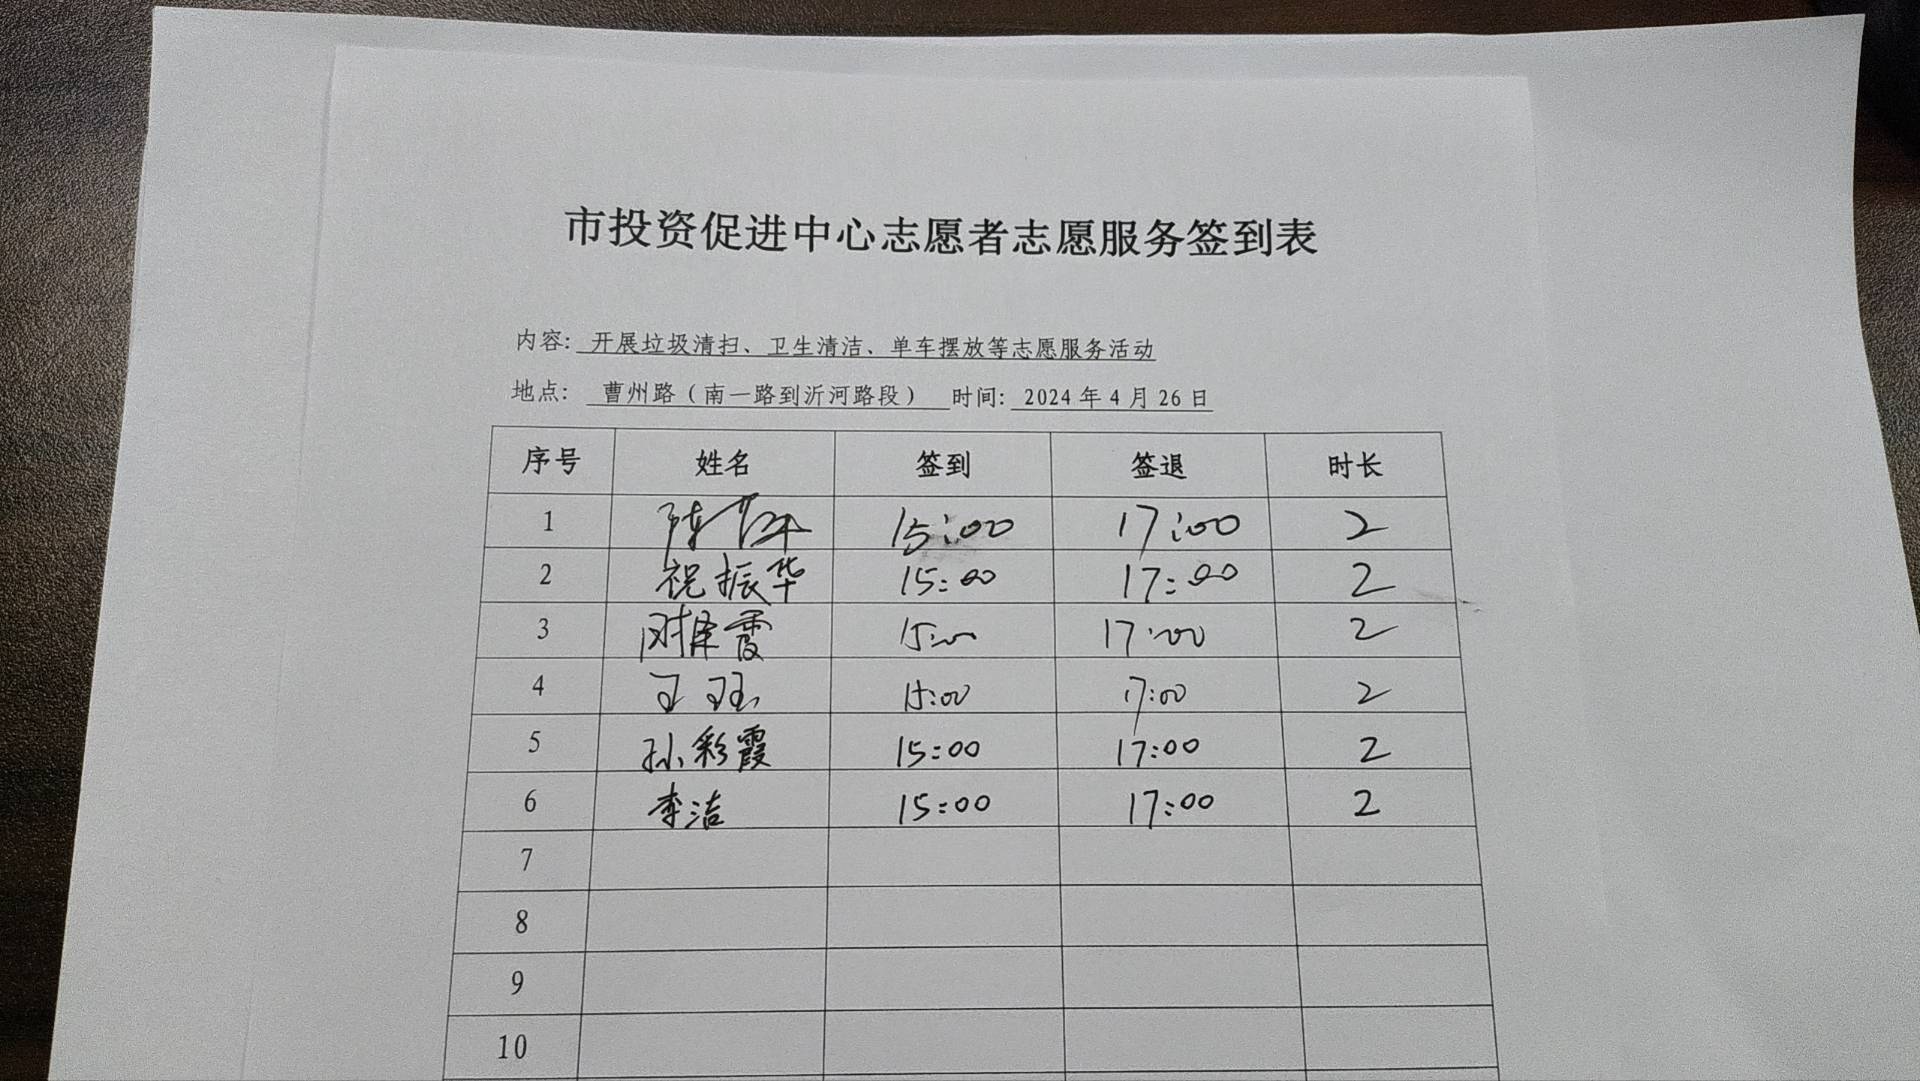 市投资促进中心志愿者志愿服务签到表
内容: 开展垃圾清扫、卫生清洁、单车摆放等志愿服务活动
地点: 曹州路（南一路到沂河路段） 时间: 2024年4月26日
序号 姓名 签到 签退 时长
1 陈 15:00 17:00 2
2 祝振华 15:00 17:00 2
3 15:00 17:00 2
4 王 15:00 17:00 2
5 孙彩霞 15:00 17:00 2
6 李洁 15:00 17:00 2
7
8
9
10